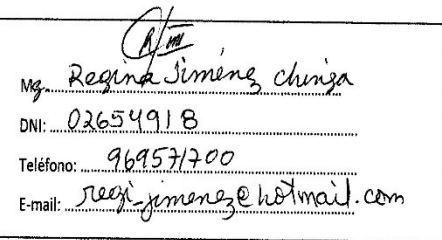 Mg. Regina Jiménez Chunga
DNI: 02654918
Teléfono: 969571700
E-mail: regi_jimenez@hotmail.com